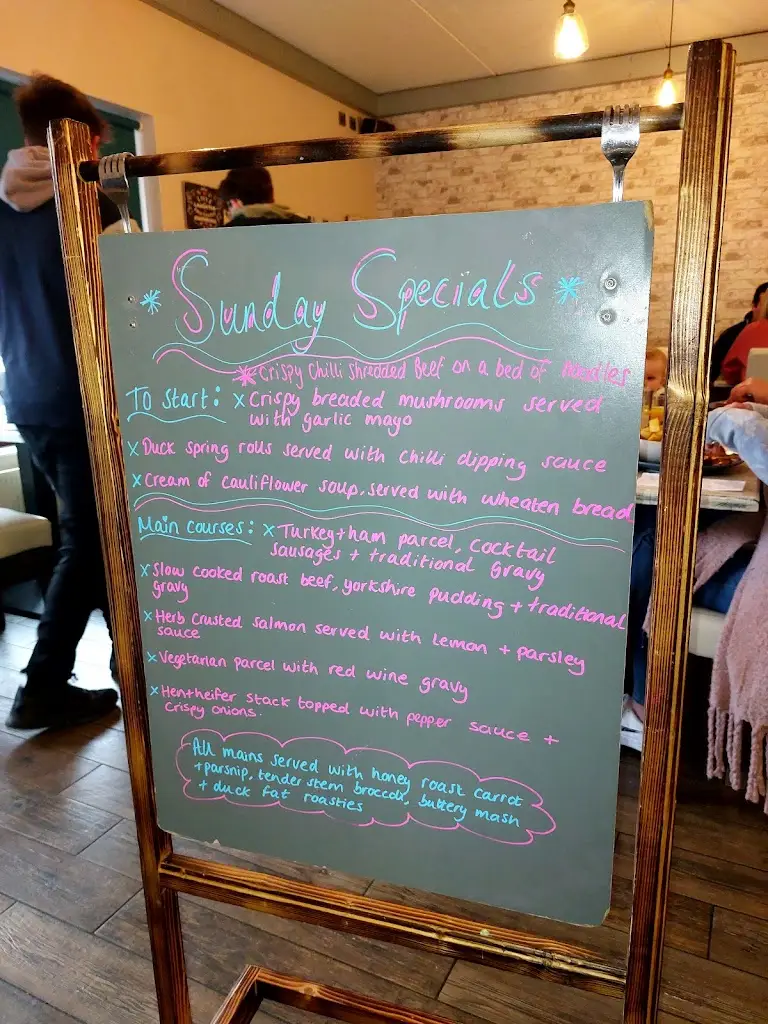 * Sunday Specials *
* Crispy Chilli Shredded Beef on a bed of Noodles
To Start: x Crispy breaded mushrooms served
with garlic mayo
x Duck spring rolls served with chilli dipping sauce
x Cream of cauliflower soup, served with wheaten bread
Main courses: x Turkey+ham parcel, cocktail
sausages + traditional gravy
x Slow cooked roast beef, yorkshire pudding + traditional
gravy
x Herb crusted salmon served with lemon + parsley
sauce
x Vegetarian parcel with red wine gravy
x Hen+heifer stack topped with pepper sauce +
crispy onions.
All mains served with honey roast carrot
+parsnip, tender stem broccoli, buttery mash
+ duck fat roasties